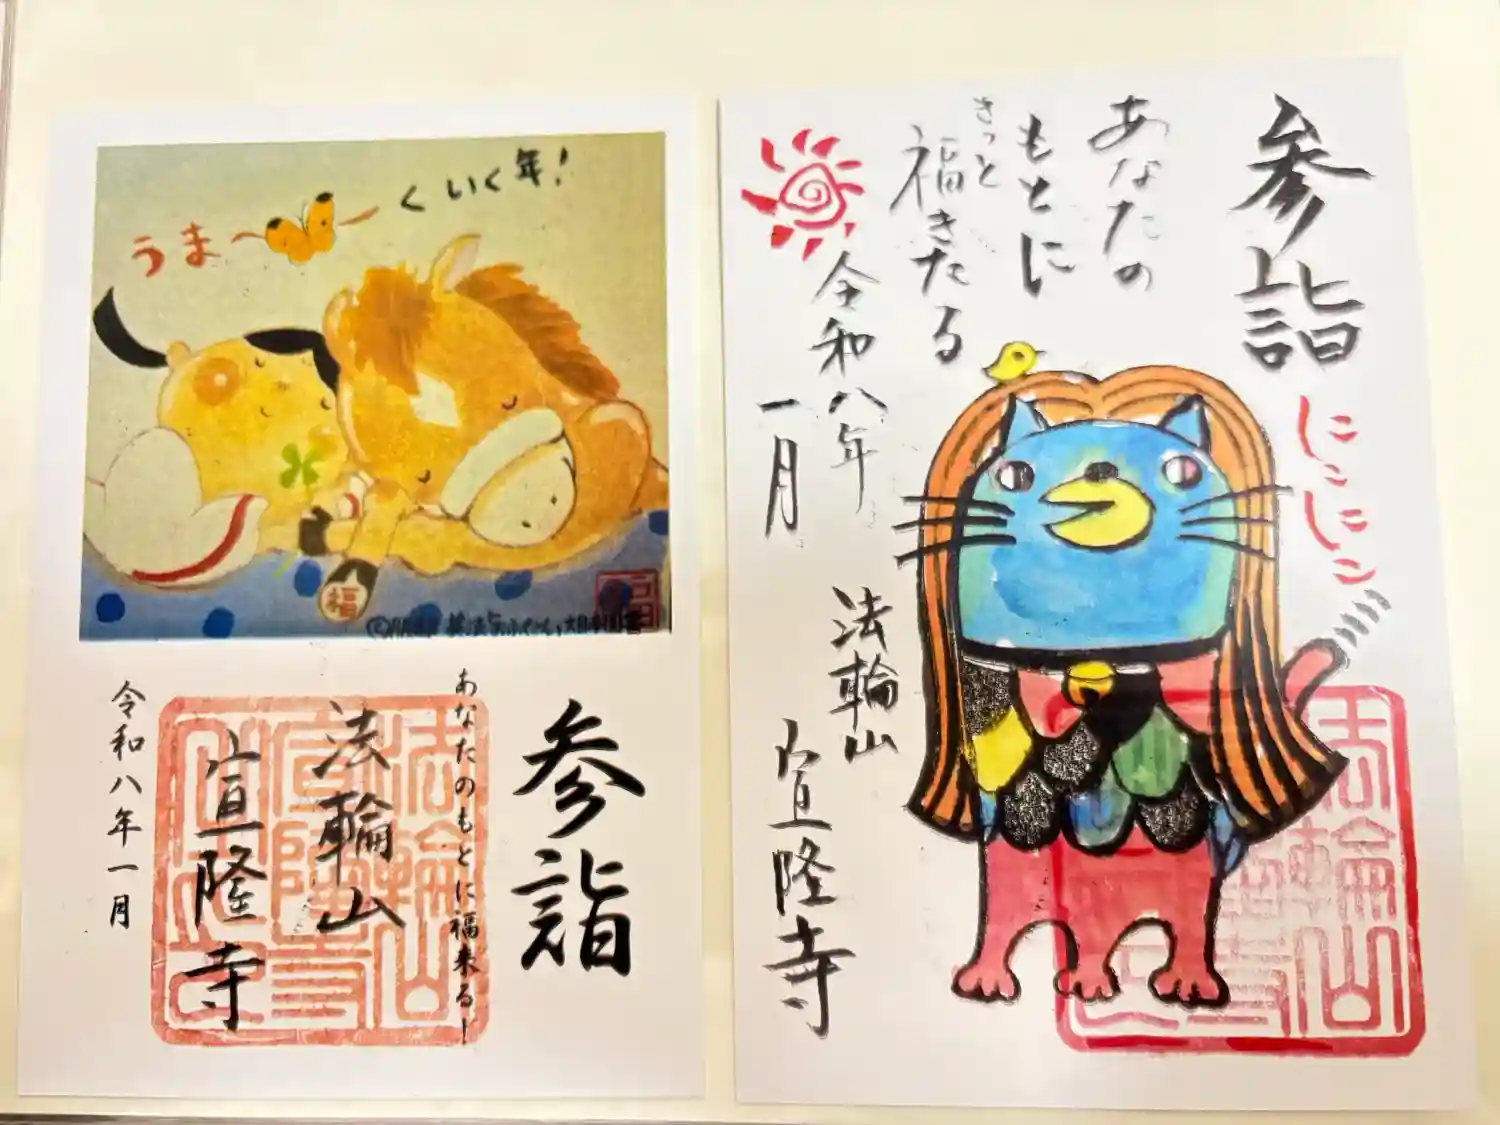 うま〜くいく年！
福
参詣
あなたのもとに福来るー
法輪山
宣隆寺
令和八年一月
参詣
にこにこ
あなたの
もとに
きっと
福きたる
令和八年
一月
法輪山
宣隆寺